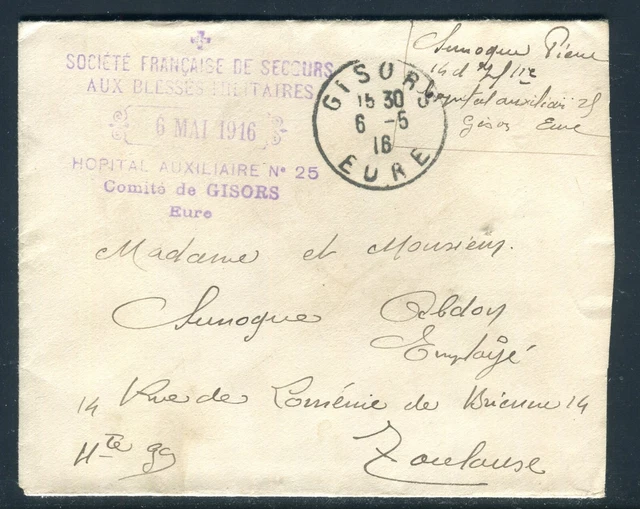 SOCIÉTÉ FRANÇAISE DE SECOURS
AUX BLESSÉS MILITAIRES
6 MAI 1916
HOPITAL AUXILIAIRE Nº 25
Comité de GISORS
Eure
GISORS
15 30
6 -5
16
EURE
Sunogue Pierre
14d
Hopital auxiliair 25
Gisors Eure
Madame et Monsieur
Sunogue Abdon
Employé
14 Rue de Loménie de Brienne 14
Hte
Toulouse